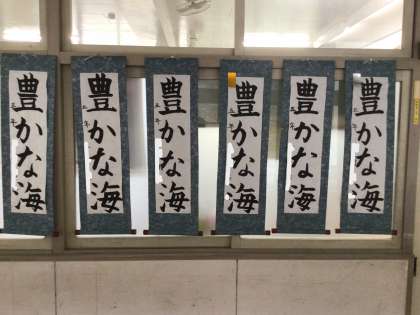 豊かな海
豊かな海
豊かな海
豊かな海
豊かな海
豊かな海